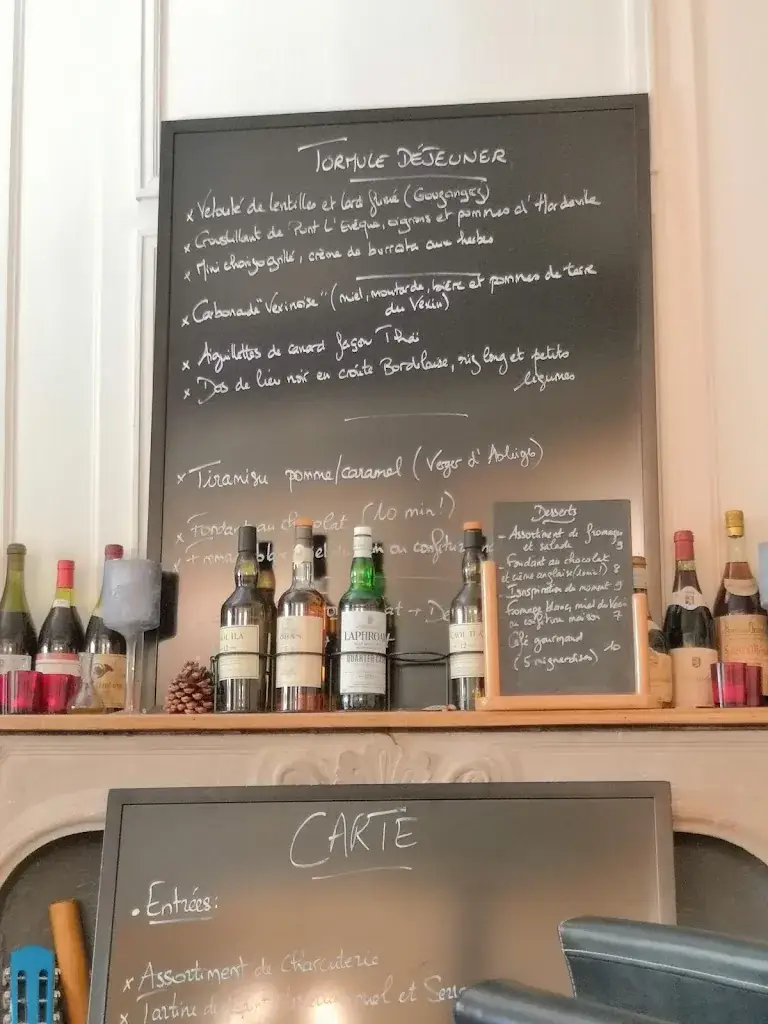 FORMULE DÉJEUNER
x Velouté de lentilles et lard fumé (Gouzangez)
x Croustillant de Pont L'Evêque, oignons et pommes d'Hardeville
x Mini chorizo grillé, crème de burrata aux herbes
x Carbonade "Vexinoise" (miel, moutarde, bière et pommes de terre
du Vexin)
x Aiguillettes de canard façon Thaï
x Dos de lieu noir en croûte Bordelaise, riz long et petits
légumes
x Tiramisu pomme/caramel (Verger d'Ableiges)
x Fondant au chocolat (10 min!)
x Froma ou confiture
at + De
Desserts
- Assortiment de fromages
et salade 9
- Fondant au chocolat
et crème anglaise (10 min!) 8
- Inspiration du moment 9
- fromage blanc, miel du Vexin
ou confiture maison 7
- Café gourmand
(5 mignardises) 10
CAOL ILA
12
LAPHROAIG
QUARTER CASK
CAOL ILA
12
CARTE
• Entrées:
x Assortiment de Charcuterie
x Tartine de et